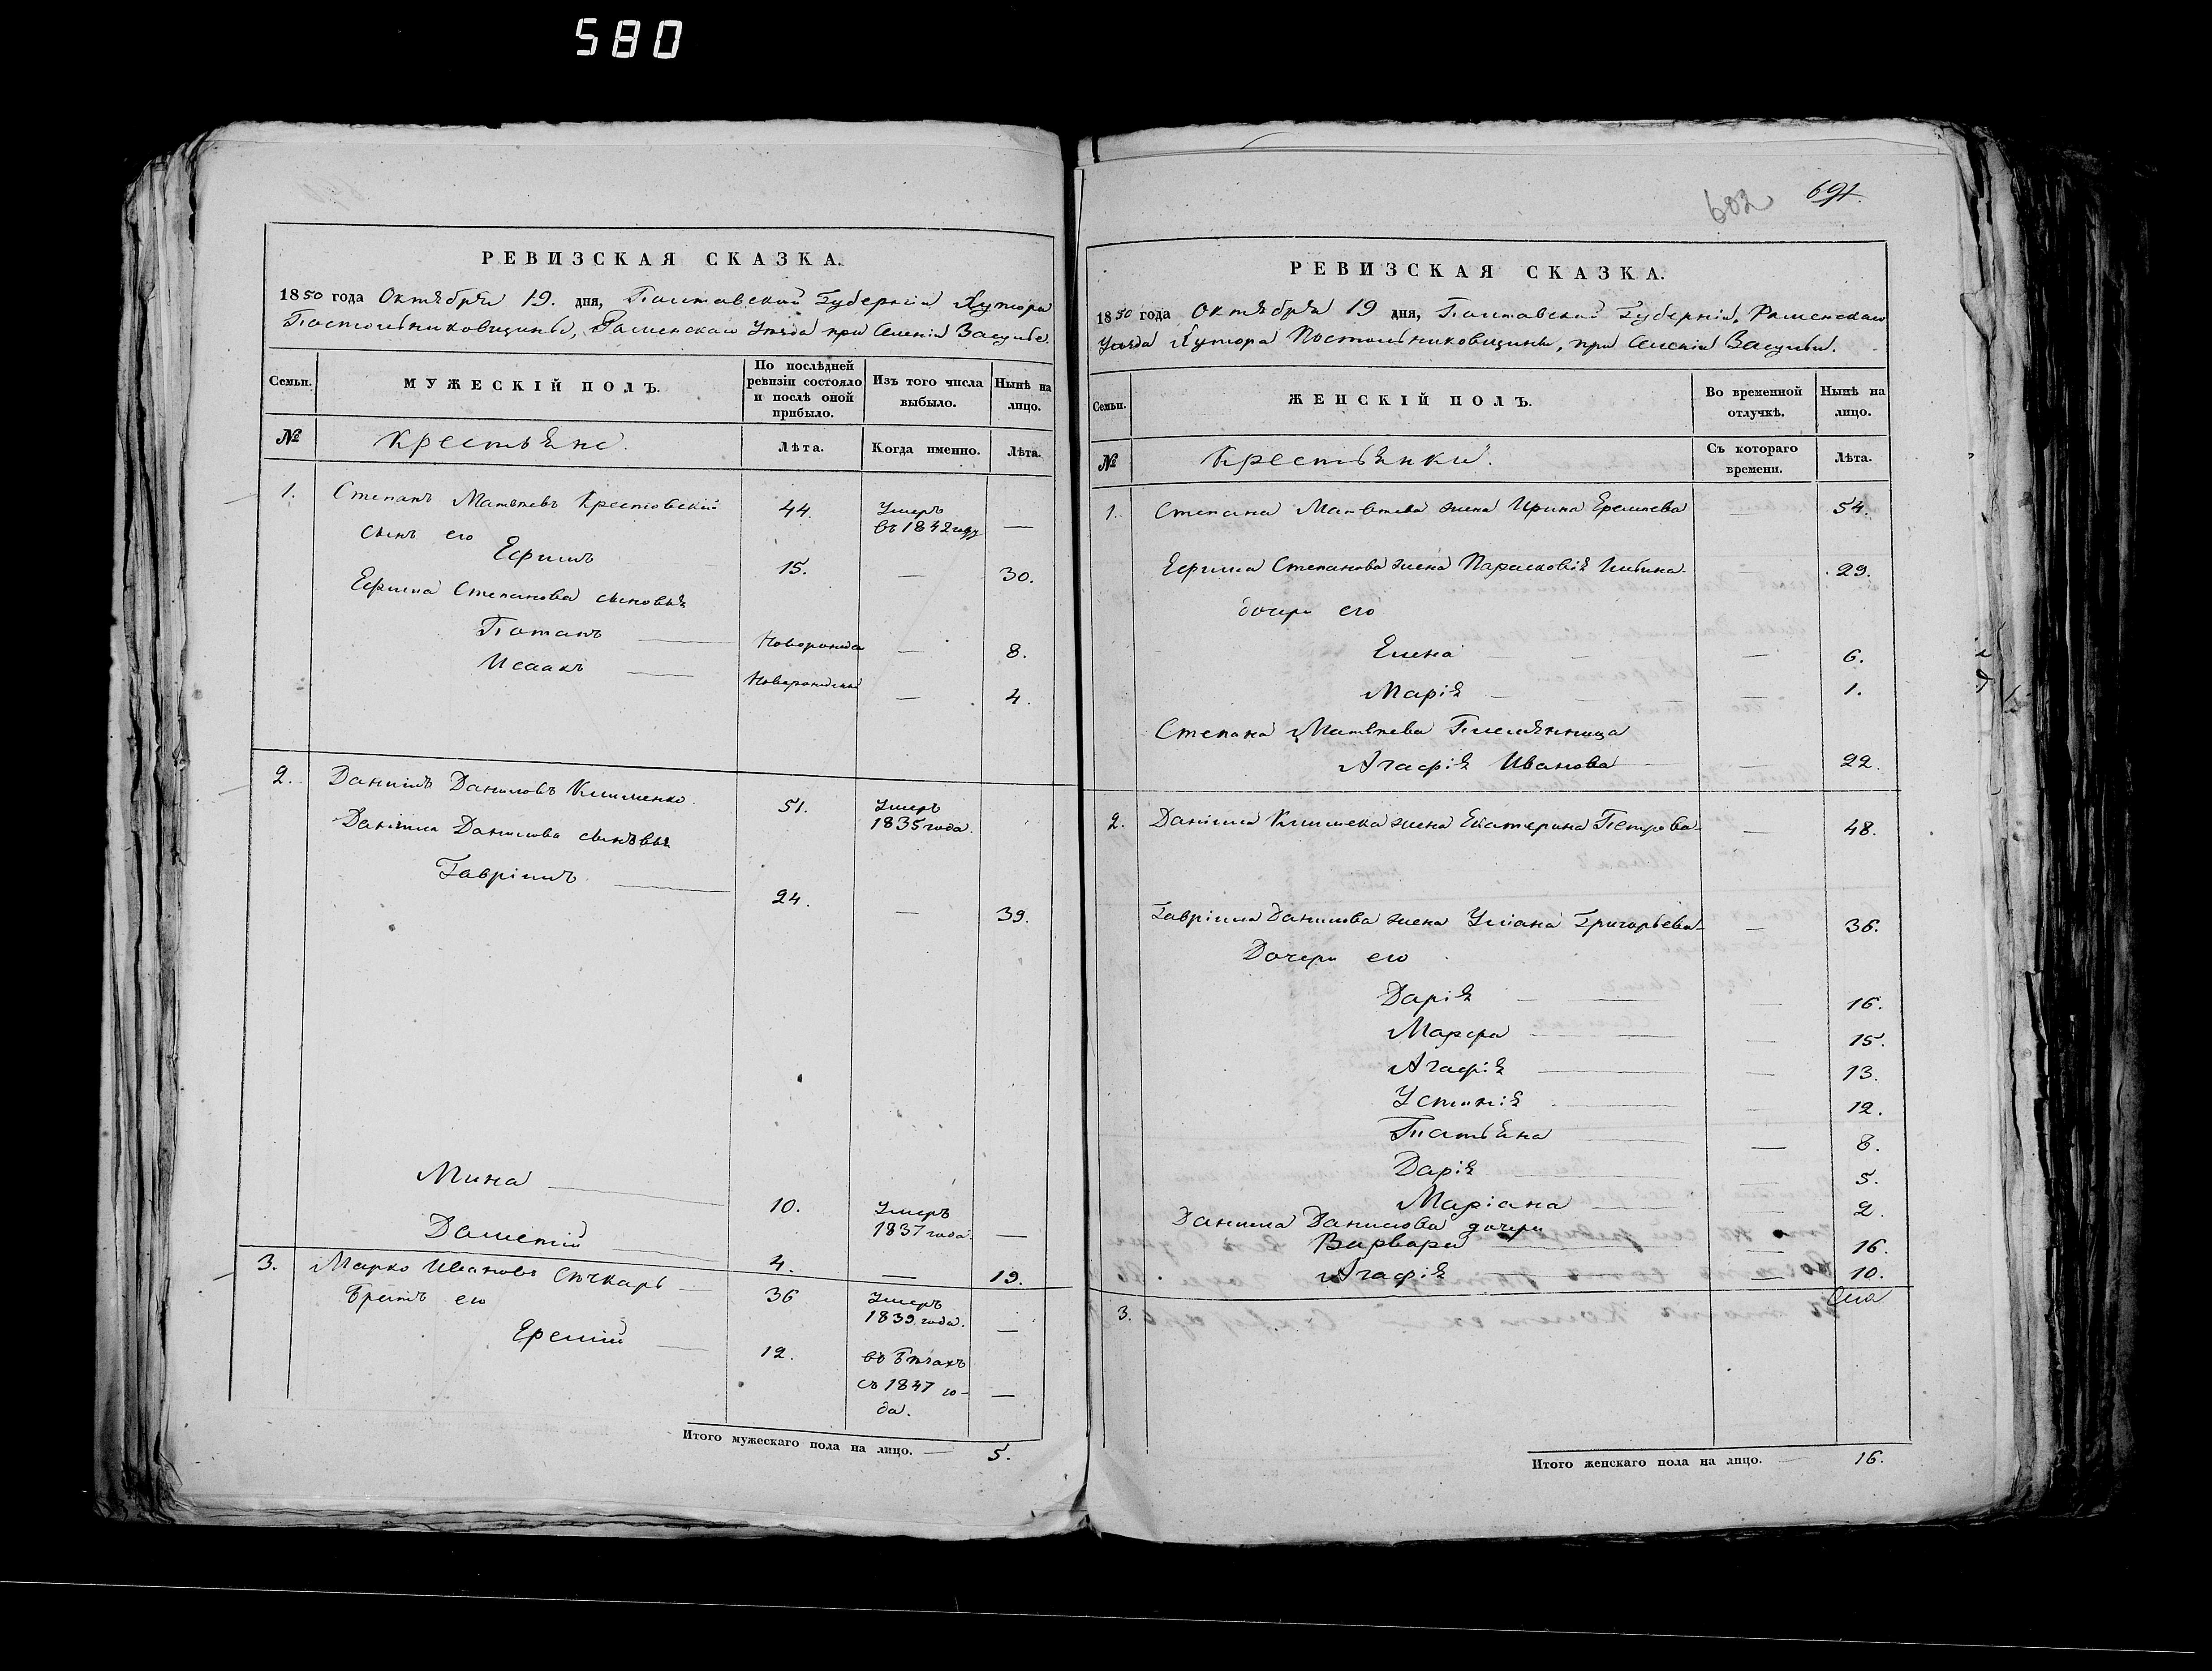 580
РЕВИЗСКАЯ СКАЗКА.
1850 года Октября 19. дня, Полтавской Губерніи Хутора
Постольниковщины, Роменскаго Уезда при селеніи Засулье.
Семьи.
МУЖЕСКІЙ ПОЛЪ.
По последней ревизіи состояло и послѣ оной прибыло.
Изъ того числа выбыло.
Нынѣ на лицо.
№
Крестьяне.
Лѣта.
Когда именно.
Лѣта.
1. Степанъ Матвѣевъ Крестовский 44. Умеръ въ 1842 году —
сынъ его
Ефимъ 15. — 30.
Ефима Степанова сыновья
Потапъ — Новорожде — 8.
Исаакъ — Новорожденый — 4.
2. Даніилъ Даниловъ Клименко. 51. Умеръ 1835 года.
Даніила Данилова сыновья
Гавріилъ — 24. — 39.
Мина — 10. Умеръ 1837 года. —
Дометій — 4. — 19.
3. Марко Ивановъ Сѣчкарь — 36 Умеръ 1839 года. —
Братъ его
Еремій — 12. въ Бѣгахъ съ 1847 го-
да. —
Итого мужескаго пола на лицо. — 5.
602 691.
РЕВИЗСКАЯ СКАЗКА.
1850 года Октября 19 дня, Полтавской Губерніи, Роменскаго
Уезда Хутора Постольниковщины, при селеніи Засулье.
Семьи.
ЖЕНСКІЙ ПОЛЪ.
Во временной отлучкѣ.
Нынѣ на лицо.
№
Крестьянки.
Съ котораго времени.
Лѣта.
1. Степана Матвѣева жена Ирина Еремѣева — 54.
Ефима Степанова жена Парасковія Ильина. — 29.
дочери его
Елена — — 6.
Марія — — 1.
Степана Матвѣева Племянница
Агафія Иванова — — 22.
2. Даніила Клименка жена Екатерина Петрова — 48.
Гавріила Данилова жена Уліана Григорьева — 36.
Дочери его
Дарія — — 16.
Марфа — — 15.
Агафія — — 13.
Устинія — — 12.
Татьяна — — 8.
Дарія — — 5.
Маріана — — 2.
Данила Данилова дочери
Варвара — — 16.
Агафія — — 10.
3.
Итого женскаго пола на лицо. — 16.